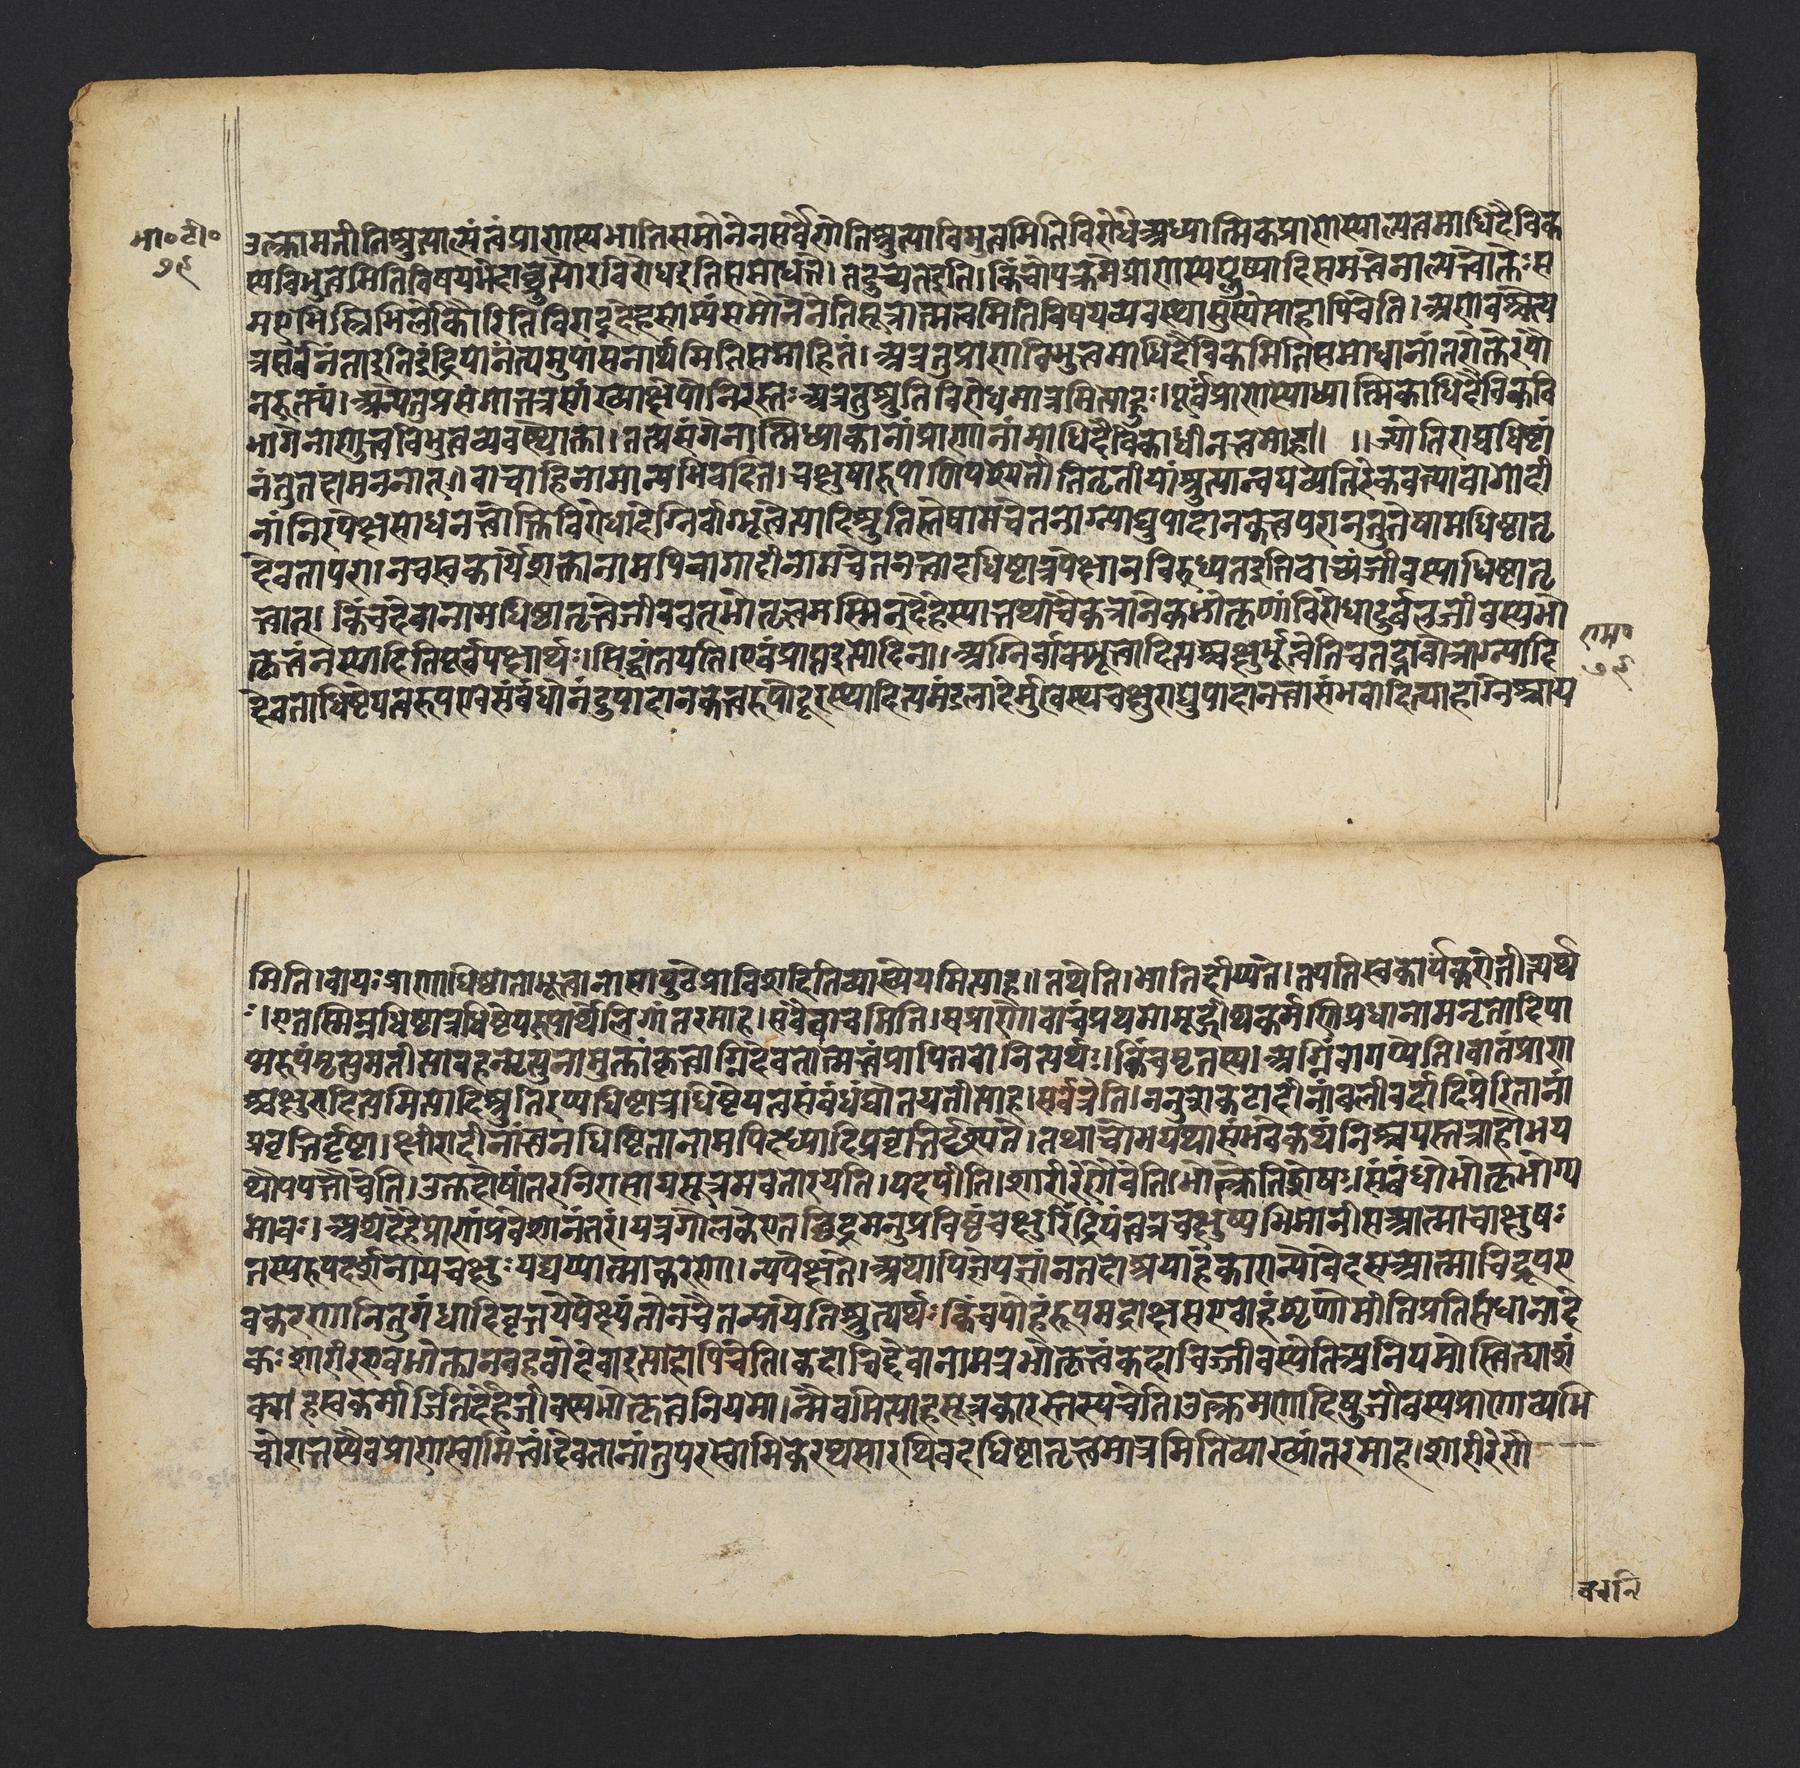 भा॰टी॰
७९
उत्क्रामतीतिश्रुत्याल्पत्वंप्राणस्यभातिसमोनेनसर्वेणेतिश्रुत्याविभुत्वमितिविरोधेअध्यात्मिकप्राणस्याल्पत्वमाधिदैविक
स्यविभुत्वमितिविषयभेदाच्छ्रुत्योरविरोधइतिसमाधत्ते। तदुच्यतेइति। किंचोपक्रमेप्राणस्यप्लुष्यादिसमत्वेनाल्पत्वोक्तेःस
मएभिस्त्रिभिर्लोकैरितिविराड्देहसाम्यंसमोनेनेतिसूत्रात्मत्वमितिविषयव्यवस्थासुस्थेत्याहापिचेति। अणवश्चेत्य
त्रसर्वेनंताइतिइंद्रियानंत्यमुपासनार्थमितिसमाहितं। अत्रतुप्राणविभुत्वमाधिदैविकमितिसमाधानांतरोक्तेरपौ
नरुक्त्यं। अन्येतुप्रसंगात्तत्रसांख्याक्षेपोनिरस्तःअत्रतुश्रुतिविरोधमात्रमित्याहुः। पूर्वंप्राणस्याध्यात्मिकाधिदैविकवि
भागेनाणुत्वविभुत्वव्यवस्थोक्ता। तत्प्रसंगेनात्मिध्याकानांप्राणानामाधिदैविकाधीनत्वमाह॥ ॥ज्योतिराद्यधिष्टा
नंतुतदामननात्॥ वाचाहिनामान्यभिवदति। चक्षुषारूपाणिपश्यतीतितृतीयाश्रुत्यान्वयव्यतिरेकवत्यावागादी
नांनिरपेक्षसाधनत्वोक्तिविरोधादग्निर्वाग्भूत्वेत्यादिश्रुतिस्तेषामचेतनाग्न्याद्युपादानकत्वपरानतुतेषामधिष्ठातृ
देवतापरा। नचस्वकार्येशक्तानामपिवागादीनामचेतनत्वादधिष्टात्रपेक्षानविरुध्यतइतिवाच्यंजीवस्याधिष्टातृ
त्वात्। किंचदेवानामधिष्ठातृत्वेजीववत्भोक्तृत्वमस्मिन्देहेस्यात्तथाचैकत्रानेकभोक्तृणांविरोधाद्दुर्बलजीवस्यभो
क्तृत्वंनस्यादितिपूर्वपक्षार्थः। सिद्धांतयति। एवंप्राप्तइत्यादिना। अग्निर्वाक्भूत्वादित्यश्चक्षुर्भूत्वेतिचतद्भावोत्राग्न्यादि
राम॰
७९
देवताधिष्टेयत्वरूपएवसंबंधोनतदुपादानकत्वरूपोदूरस्थादित्यमंडलादेर्मुखस्थचक्षुराद्युपादानत्वासंभवादित्याहाग्नेश्चाय
मिति। वायुःप्राणाधिष्ठाताभूत्वानासापुटेप्राविशदितिव्याख्येयमित्याह॥ तथेति। भातिदीप्यते। तपतिस्वकार्यंकरोतीत्यर्थ
ः। एतस्मिन्नधिष्टात्रधिष्टेयत्वरूपार्थेलिंगांतरमाह। सवैवाचमिति। सप्राणोवाचंप्रथमामुद्गीथकर्मणिप्रधानामनृतादिपा
प्मरूपंमृत्युमतीत्यावहन्मृत्युनामुक्तांकृत्वाग्निदेवतात्मत्वंप्रापितवानित्यर्थः। किंचमृतस्य। अग्निंवागप्येति। वातंप्राण
श्चक्षुरादित्यमित्यादिश्रुतिरप्यधिष्टात्रधिष्टेयत्वसंबंधंद्योतयतीत्याह। सर्वत्रेति। ननुशकटादीनांबलीवर्दादिप्रेरितानां
प्रवृत्तिर्दृष्टा। क्षीरादीनांत्वनधिष्टितानामपिदध्यादिप्रवृत्तिर्दृश्यते। तथाचोभयथासंभवेकथंनिश्चयस्तत्राहोभय
थोपपत्तौचेति। उक्तदोषांतरनिरासायसूत्रमवतारयति। यदपीति। शारीरेणेवेति। भोत्क्रेतिशेषः। संबंधोभोक्तृभोग्य
भावः। अथदेहेप्राणप्रवेशानंतरं। यत्रगोलकेएतच्छिद्रमनुप्रविष्टंचक्षुरिंद्रियंतत्रचक्षुष्यभिमानीसआत्माचाक्षुषः
तस्यरूपदर्शनायचक्षुः यद्यप्यात्माकरणे। न्यपेक्षते। अथापिज्ञेयज्ञानतदाश्रयाहंकारान्योवेदसआत्माचिद्रूपए
वकरणानितुगंधादिवृत्तयेपेक्ष्यंतेनचैतन्यायेतिश्रुत्यर्थः किंचयोहंरूपमद्राक्षंसएवाहंशृणोमीतिप्रतिसंधानादे
कः शारीरएवभोक्तानबहवोदेवाइत्याहापिचेति। कदाचिद्देवानामत्रभोक्तृत्वंकदाचिज्जीवस्येतिअनियमोस्त्वित्याशं
क्या। हस्वकर्मार्जितेदेहेजीवस्यभोक्तृत्वनियमो। न्मैवमित्याहसूत्रकारस्तस्यचेति। उत्क्रमणादिषुजीवस्यप्राणाव्यभि
चारात्तस्यैवप्राणस्वामित्वं। देवतानांतुपरस्वामिकेरथसारथिवदधिष्टातृत्वमात्रमितिव्याख्यांतरमाह। शारीरेणै
वचनि